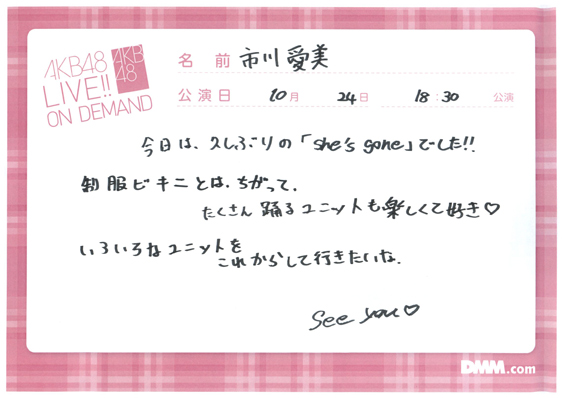 AKB48
LIVE!!
ON DEMAND
AKB
48
名 前 市川愛美
公演日 10月 24日 18:30 公演
今日は、久しぶりの「she's gone」でした!!
制服ビキニとは、ちがって、
たくさん 踊るユニットも楽しくて好き♡
いろいろなユニットを
これからして行きたいな。
See you♡
DMM.com